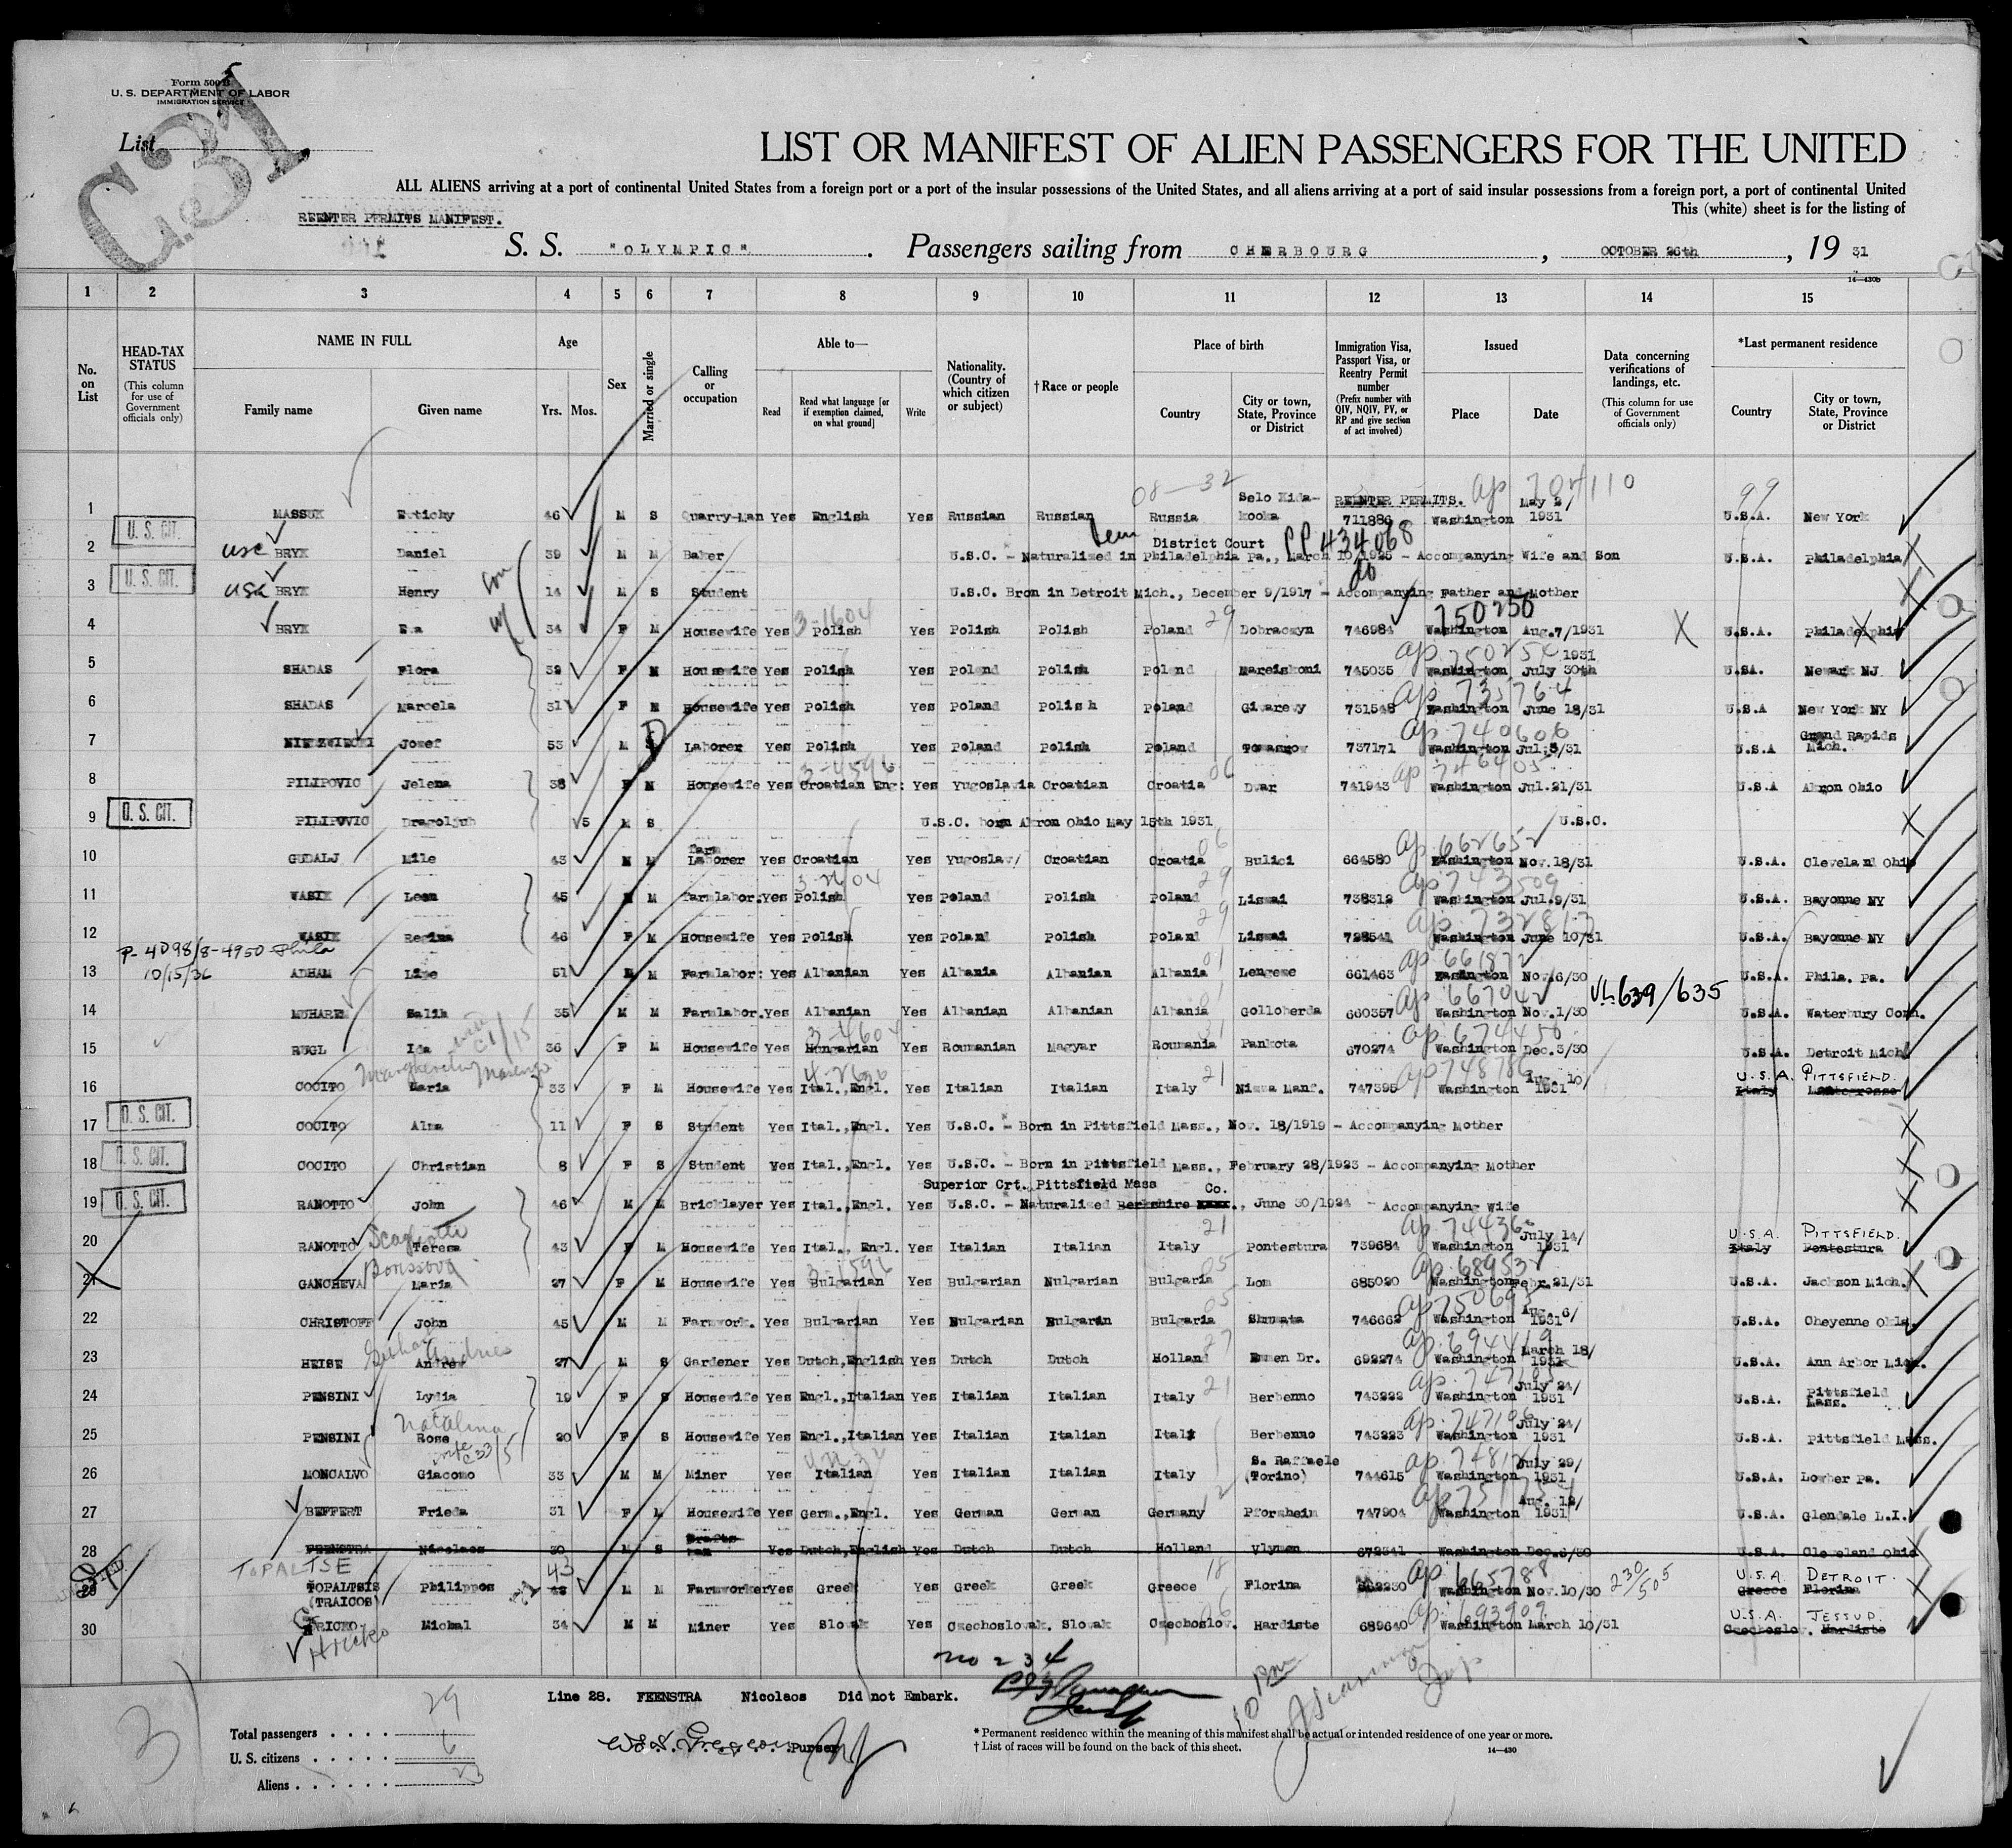 Form 500 B
U. S. DEPARTMENT OF LABOR
IMMIGRATION SERVICE
C.31
List
LIST OR MANIFEST OF ALIEN PASSENGERS FOR THE UNITED
ALL ALIENS arriving at a port of continental United States from a foreign port or a port of the insular possessions of the United States, and all aliens arriving at a port of said insular possessions from a foreign port, a port of continental United
This (white) sheet is for the listing of
REENTER PERMITS MANIFEST.
S. S. "OLYMPIC". Passengers sailing from CHERBOURG, OCTOBER 26th, 19 31
14—430b
1 2 3 4 5 6 7 8 9 10 11 12 13 14 15
No. on List
HEAD-TAX STATUS (This column for use of Government officials only)
NAME IN FULL Family name Given name
Age Yrs. Mos.
Sex
Married or single
Calling or occupation
Able to— Read Read what language [or if exemption claimed, on what ground] Write
Nationality. (Country of which citizen or subject)
† Race or people
Place of birth Country City or town, State, Province or District
Immigration Visa, Passport Visa, or Reentry Permit number (Prefix number with QIV, NQIV, PV, or RP and give section of act involved)
Issued Place Date
Data concerning verifications of landings, etc. (This column for use of Government officials only)
*Last permanent residence Country City or town, State, Province or District
08-32 REENTER PERMITS. ap. 704110 99
1 MASSUK Eutichy 46 M S Quarry-Man Yes English Yes Russian Russian Russia Selo Kida-kooka 711886 Washington May 2/ 1931 U.S.A. New York
U. S. CIT.
District Court PP 434068
2 USC BRYK Daniel 39 M M Baker U.S.C. - Naturalized in Philadelphia Pa., March 10/1925 - Accompanying Wife and Son U.S.A. Philadelphia
U. S. CIT. do
3 USC BRYK Henry 14 M S Student U.S.C. Bron in Detroit Mich., December 9/1917 - Accompanying Father and Mother
3-1604 29 750250
4 BRYK Eva 34 F M Housewife Yes Polish Yes Polish Polish Poland Dobraczyn 746984 Washington Aug.7/1931 U.S.A. Philadelphia
ap 750254
5 SHADAS Flora 39 F M Housewife Yes Polish Yes Poland Polish Poland Mareiskoni 745035 Washington July 30th 1931 U.SA. Newark NJ
ap 735764
6 SHADAS Marcela 31 F M Housewife Yes Polish Yes Poland Polish Poland Givarevy 731548 Washington June 18/31 U.S.A New York NY
ap 740606
7 Jozef 53 M Laborer Yes Polish Yes Poland Polish Poland 737171 Washington Jul;8/31 U.S.A Grand Rapids Mich.
3-4596 06 ap 746405
8 PILIPOVIC Jelena 38 F M Housewife Yes Croatian Eng: Yes Yugoslavia Croatian Croatia Dvar 741943 Washington Jul.21/31 U.S.A Akron Ohio
U. S. CIT.
9 PILIPOVIC Dragoljub 5 M S U.S.C. born Akron Ohio May 15th 1931 U.S.C.
06 ap 662652
10 GUDALJ Mile 43 M M Farm Laborer Yes Croatian Yes Yugoslav Croatian Croatia Bulici 664580 Washington Nov.18/31 U.S.A. Cleveland Ohio
3-2604 29 ap 743509
11 WASIK Leon 45 M M Farmlabor. Yes Polish Yes Poland Polish Poland Liswai 738312 Washington Jul.9/31 U.S.A. Bayonne NY
29 ap 732817
12 WASIK Regina 46 F M Housewife Yes Polish Yes Poland Polish Poland Liswai 728541 Washington June 10/31 U.S.A. Bayonne NY
P-4098/8-4950 Phila 10/15/36 01 ap 661872
13 ADHAM Lime 51 M M Farmlabor: Yes Albanian Yes Albania Albanian Albania Lengese 661463 Washington Nov.6/30 U.S.A. Phila. Pa.
01 ap 667042 VL 639/635
14 MUHAREM Salih 35 M M Farmlabor. Yes Albanian Yes Albanian Albanian Albania Golloberda 660357 Washington Nov.1/30 U.S.A. Waterbury Conn.
3-4604 31 ap 674450
15 RUGL Ida 36 F M Housewife Yes Hungarian Yes Roumanian Magyar Roumania Pankota 670274 Washington Dec.3/30 U.S.A. Detroit Mich
21 ap 748786
16 COCITO Maria 33 F M Housewife Yes Ital., Engl. Yes Italian Italian Italy Nizza Manf. 747395 Washington Aug. 10/ 1931 U.S.A. PITTSFIELD. Italy Montegrosso
U. S. CIT.
17 COCITO Alma 11 F S Student Yes Ital.,Engl. Yes U.S.C. - Born in Pittsfield Mass., Nov. 18/1919 - Accompanying Mother
U. S. CIT.
18 COCITO Christian 8 F S Student Yes Ital.,Engl. Yes U.S.C. - Born in Pittsfield Mass., February 28/1923 - Accompanying Mother
U. S. CIT. Superior Crt. Pittsfield Mass Co.
19 RANOTTO John 46 M M Bricklayer Yes Ital.,Engl. Yes U.S.C. - Naturalized Berkshire, June 30/1924 - Accompanying Wife
21 ap 74436
20 RANOTTO Teresa 43 F M Housewife Yes Ital., Engl. Yes Italian Italian Italy Pontestura 739684 Washington July 14/ 1931 U.S.A. PITTSFIELD. Italy Pontestura
Borissova 3-1596 05 ap 689532
21 GANCHEVA Maria 27 F M Housewife Yes Bulgarian Yes Bulgarian Nulgarian Bulgaria Lom 685020 Washington Febr.21/31 U.S.A. Jackson Mich.
05 ap 750695
22 CHRISTOFF John 45 M M Farmwork. Yes Bulgarian Yes Bulgarian Bulgarin Bulgaria Shumata 746662 Washington Aug. 6/ 1931 U.S.A. Cheyenne Okla.
Andries 27 ap 694419
23 HEISE Andrew 27 M S Gardener Yes Dutch,English Yes Dutch Dutch Holland Emmen Dr. 692274 Washington March 18/ 1931 U.S.A. Ann Arbor Mich.
21 ap 747185
24 PENSINI Lydia 19 F S Housewife Yes Engl.,Italian Yes Italian Italian Italy Berbenno 743222 Washington July 24/ 1931 U.S.A. Pittsfield Mass.
Natalina ap 747196
25 PENSINI Rose 20 F S Housewife Yes Engl.,Italian Yes Italian Italian Italy Berbenno 743223 Washington July 24/ 1931 U.S.A. Pittsfield Mass.
ap 748121
26 MONCALVO Giacomo 33 M M Miner Yes Italian Yes Italian Italian Italy S. Raffaele (Torino) 744615 Washington July 29/ 1931 U.S.A. Lowber Pa.
12
27 BEFFERT Frieda 31 F M Housewife Yes Germ.,Engl. Yes German German Germany Pforzheim 747904 Washington Aug. 12/ 1931 U.S.A. Glendale L.I.
28 FEENSTRA Nicolaos 30 M S Draftsman Yes Dutch,English Yes Dutch Dutch Holland Vlymen 672341 Washington Deg.6/30 U.S.A. Cleveland Ohio
TOPALTSE 43 18 ap 665788 230/505
29 TOPALTSIS (TRAICOS) Philippos 43 M M Farmworker Yes Greek Yes Greek Greek Greece Florina 662230 Washington Nov.10/30 U.S.A. DETROIT. Greece Florina
06 ap 693909
30 HRICKO Michal 34 M M Miner Yes Slovak Yes Czechoslovak. Slovak Czechoslov. Hardiste 689640 Washington March 10/31 U.S.A. JESSUP. Czechoslov. Hardiste
Hricko
no 234
Line 28. FEENSTRA Nicolaos Did not Embark.
Total passengers . . . . 29
U. S. citizens . . . . . 6
Aliens . . . . . . 23
Purser
* Permanent residence within the meaning of this manifest shall be actual or intended residence of one year or more.
† List of races will be found on the back of this sheet.
14—430